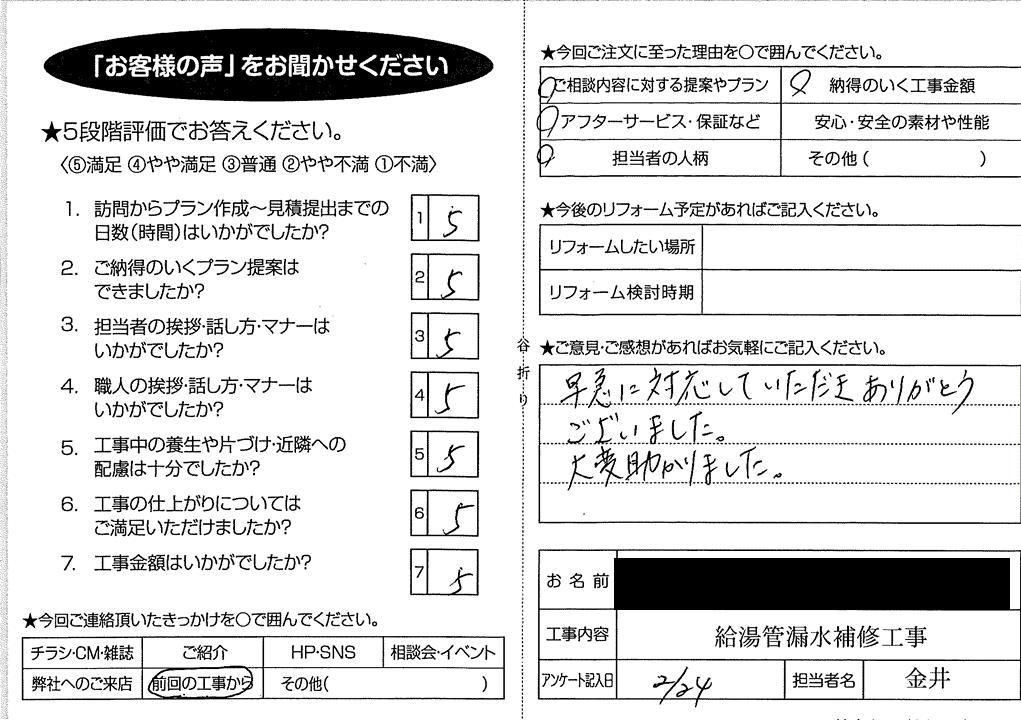 「お客様の声」をお聞かせください
★5段階評価でお答えください。
〈⑤満足 ④やや満足 ③普通 ②やや不満 ①不満〉
1. 訪問からプラン作成～見積提出までの
日数(時間)はいかがでしたか?
1 5
2. ご納得のいくプラン提案は
できましたか?
2 5
3. 担当者の挨拶・話し方・マナーは
いかがでしたか?
3 5
4. 職人の挨拶・話し方・マナーは
いかがでしたか?
4 5
5. 工事中の養生や片づけ・近隣への
配慮は十分でしたか?
5 5
6. 工事の仕上がりについては
ご満足いただけましたか?
6 5
7. 工事金額はいかがでしたか?
7 5
★今回ご連絡頂いたきっかけを○で囲んでください。
チラシ・CM・雑誌 ご紹介 HP・SNS 相談会・イベント
弊社へのご来店 前回の工事から その他( )
谷折り
★今回ご注文に至った理由を○で囲んでください。
ご相談内容に対する提案やプラン 納得のいく工事金額
アフターサービス・保証など 安心・安全の素材や性能
担当者の人柄 その他( )
★今後のリフォーム予定があればご記入ください。
リフォームしたい場所
リフォーム検討時期
★ご意見・ご感想があればお気軽にご記入ください。
早急に対応していただきありがとう
ございました。
大変助かりました。
お名前
工事内容 給湯管漏水補修工事
アンケート記入日 2/24 担当者名 金井